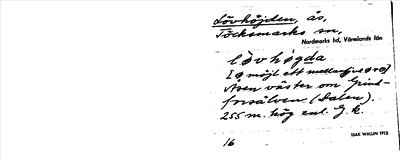 Lövhöjden, ås,
Töcksmarks sn,
Nordmarks hd, Värmlands län
løvhøgda
[ø möjl ett mellanljud ø-o]
Åsen väster om
forsälven (Dalen).
255 m. hög enl. G. k.
ISAK WALLIN 1912
16